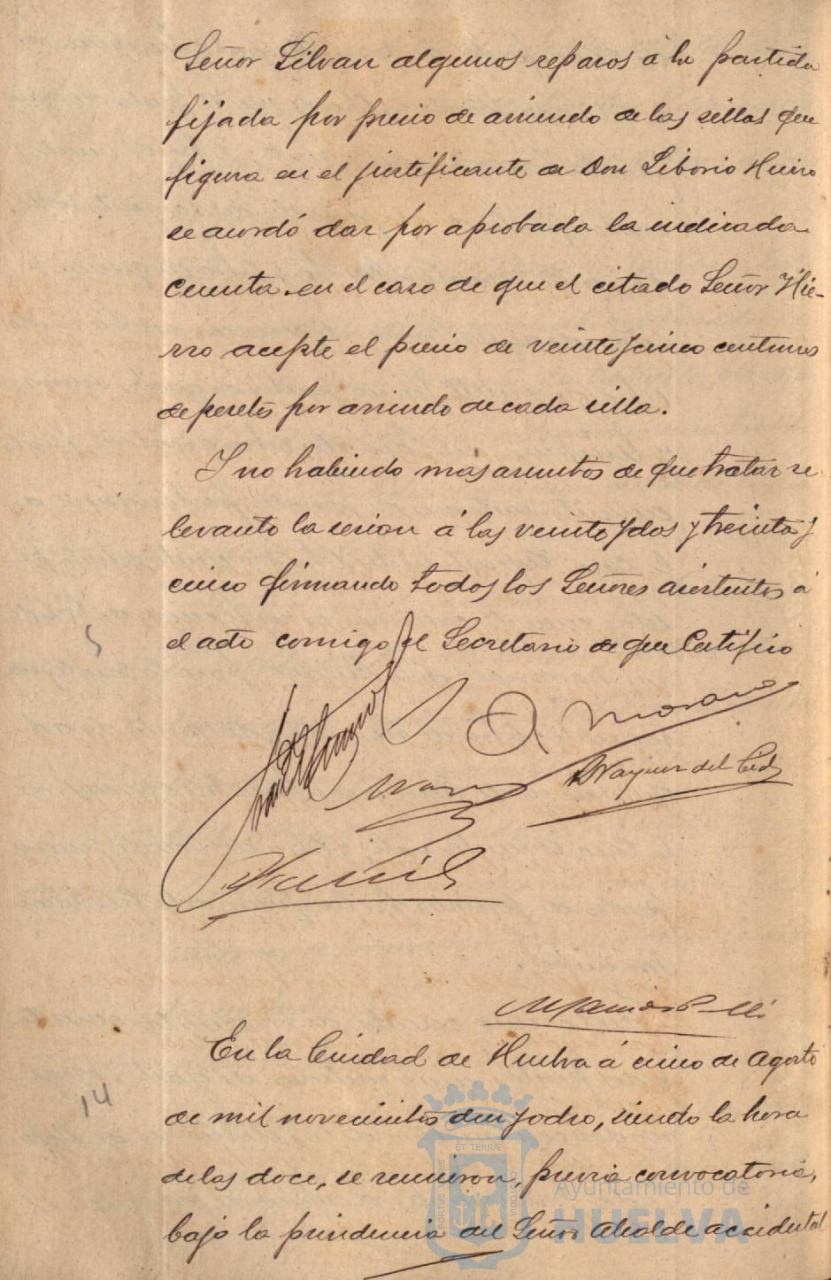 Señor Silvan algunos reparos á la partida
fijada por precio de arriendo de las sillas que
figura en el justificante de Don Liborio Hierro
se acordó dar por aprobada la indicada
cuenta en el caso de que el citado Señor Hie-
rro acepte el precio de veinte y cinco centimos
de peseta por arriendo de cada silla.
Y no habiendo mas asuntos de que tratar se
levanto la sesion á las veinte y dos y treinta y
cinco firmando todos los Señores asistentes á
el acto comigo el Secretario de que Certifico
A Morano
Vazquez del Cid
5
En la Ciudad de Huelva á cinco de Agosto
14
de mil novecientos diez y ocho, siendo la hora
de las doce, se reunieron, previa convocatoria,
bajo la presidencia del Señor Alcalde accidental
Ayuntamiento de
HUELVA